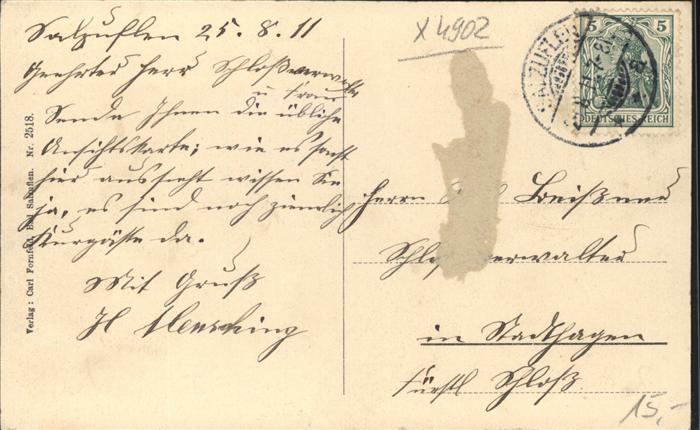 Salzuflen 25.8.11
Geehrter Herr Schloßverwalter
u Frau
Sende Ihnen die übliche
Ansichtskarte; wie es sonst
hier aussieht wissen Sie
ja, es sind noch ziemlich
Kurgäste da.
Mit Gruß
H
Verlag: Carl Fornfeld, Bad Salzuflen. Nr. 2518.
X4902
5 5
DEUTSCHES REICH
SALZUFLEN
Herrn
Schloßverwalter
in Stadthagen
Fürstl Schloß.
15,-